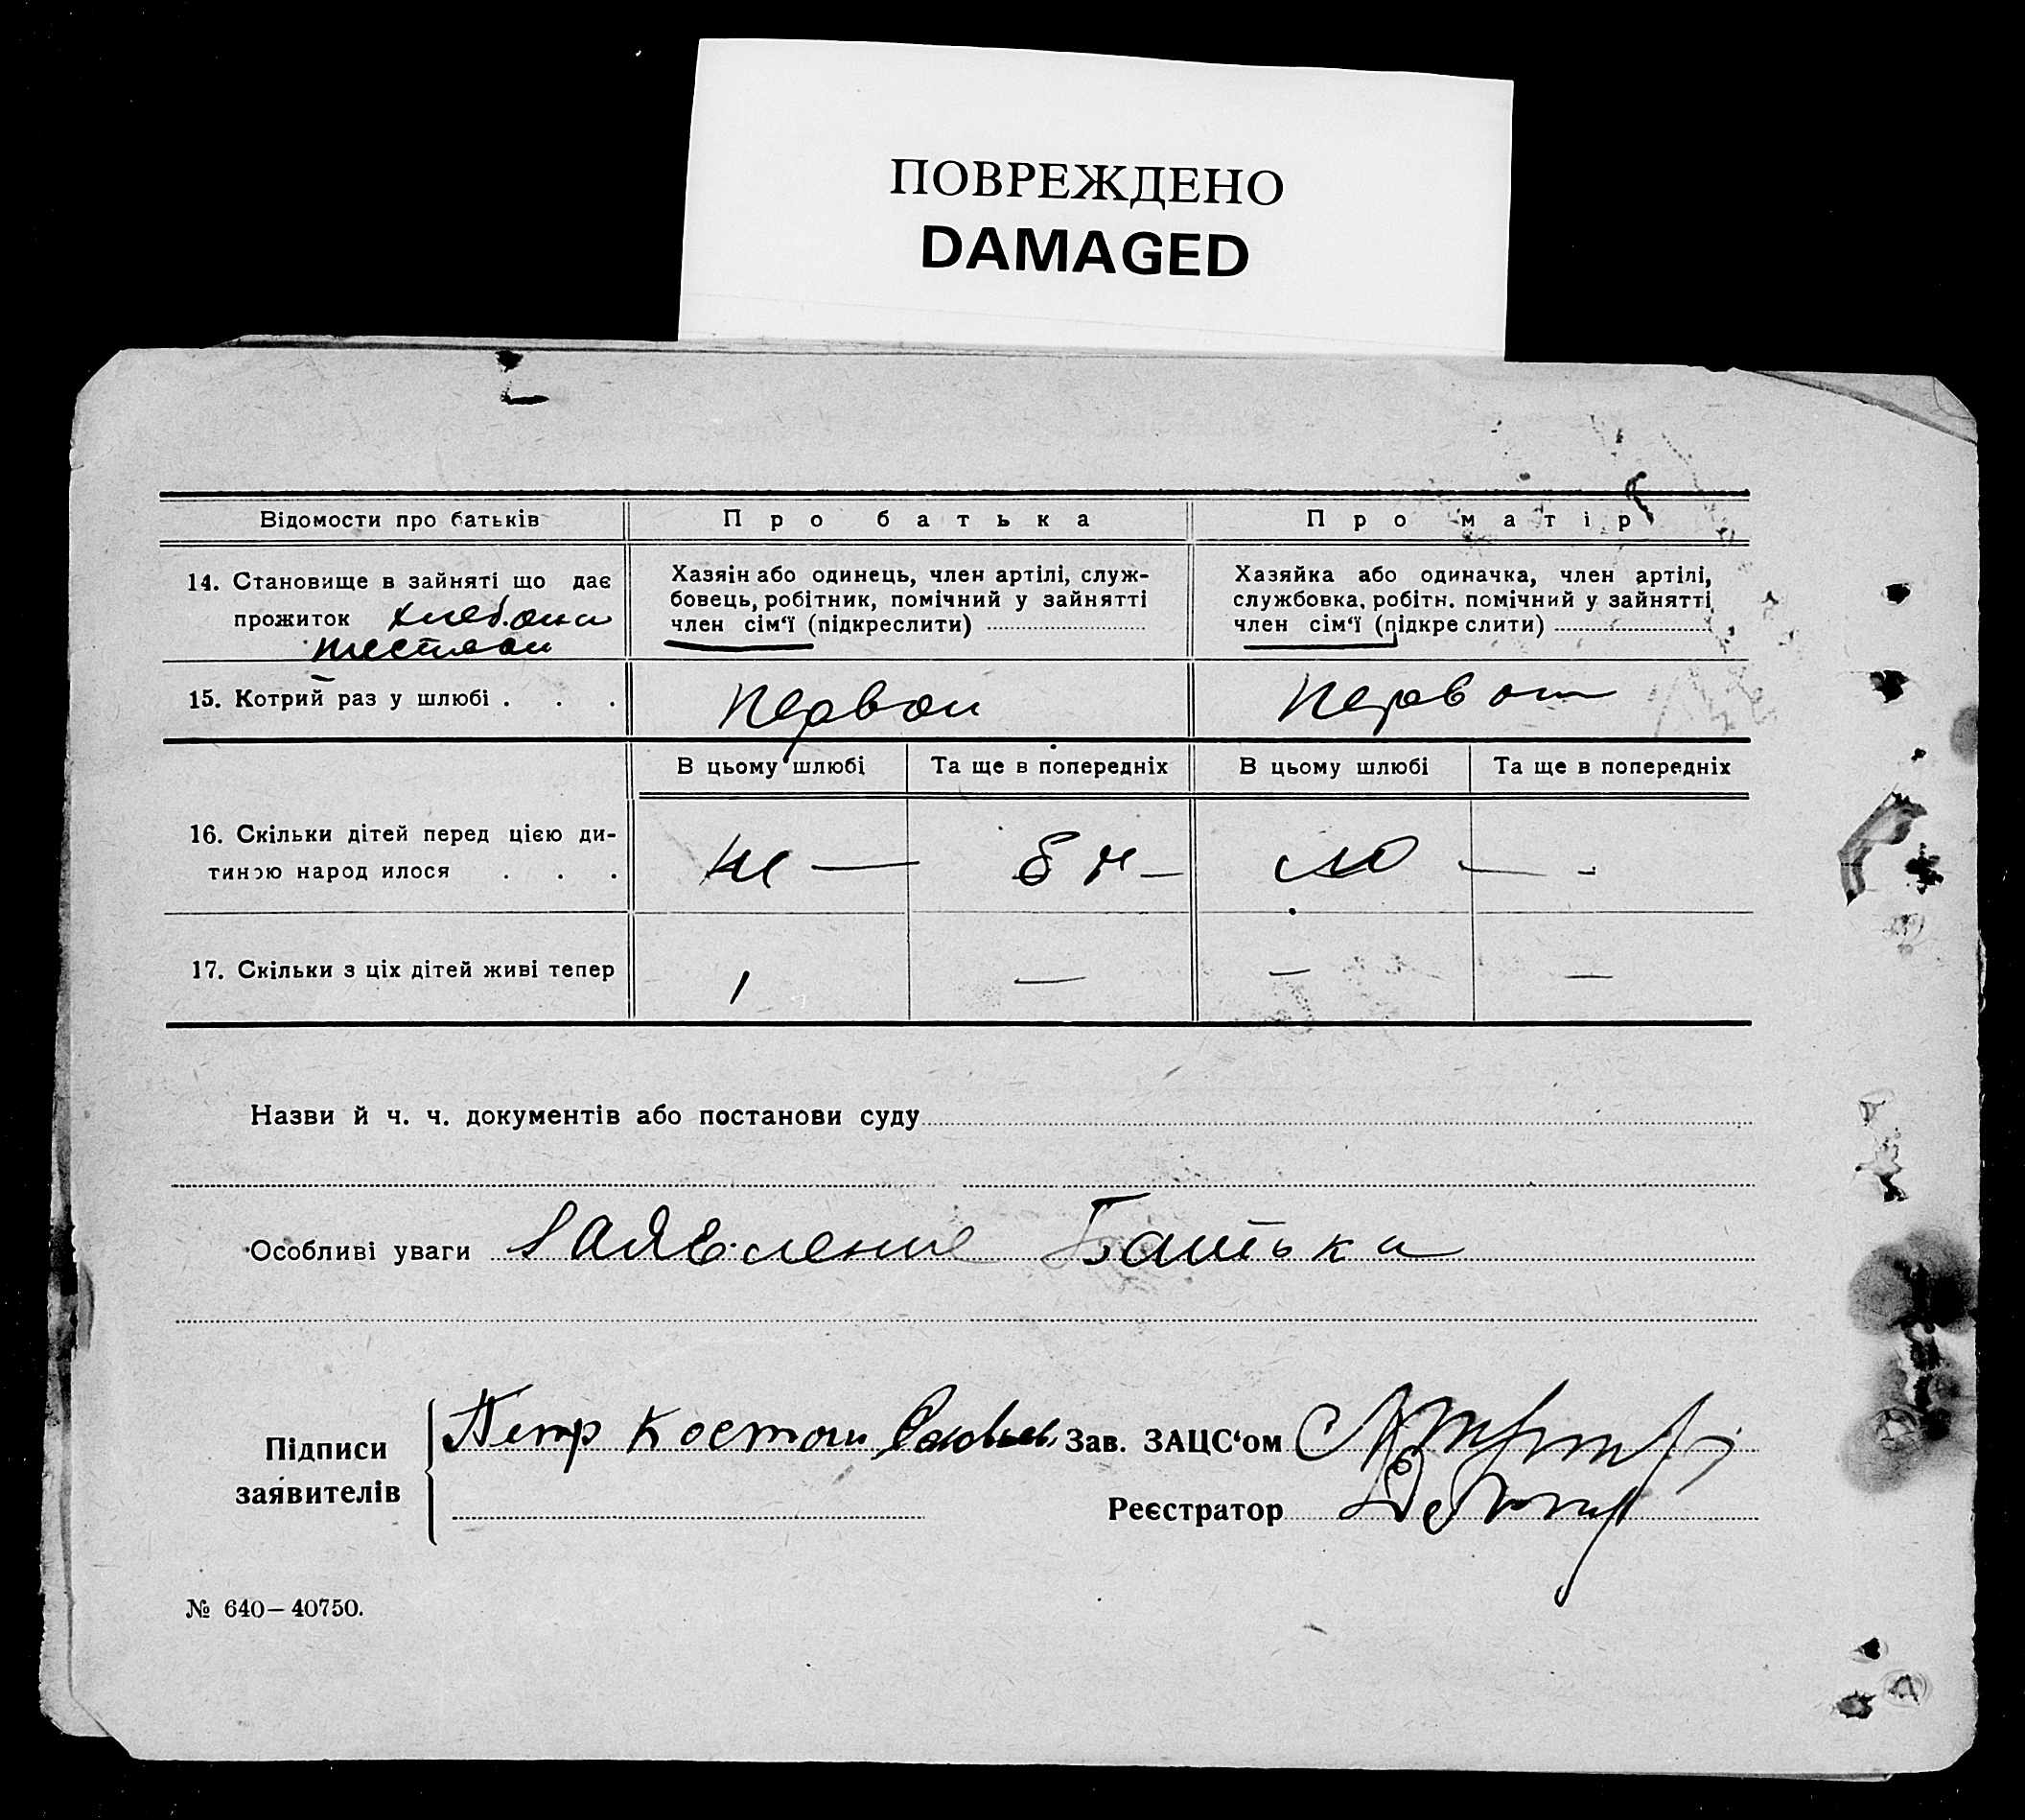 ПОВРЕЖДЕНО
DAMAGED
Відомости про батьків
Про батька
Про матір
14. Становище в зайняті що дає
прожиток
Хазяін або одинець, член артілі, служ-
бовець, робітник, помічний у зайнятті
член сім'ї (підкреслити)
Хазяйка або одиначка, член артілі,
службовка, робітн. помічний у зайнятті
член сім'ї (підкреслити)
15. Котрий раз у шлюбі . . .
первои
первои
В цьому шлюбі
Та ще в попередніх
В цьому шлюбі
Та ще в попередніх
16. Скільки дітей перед цією ди-
тиною народилося . . .
— —
17. Скільки з ціх дітей живі тепер
1 — — —
Назви й ч. ч. документів або постанови суду
Особливі уваги Заявление Батька
Підписи
заявителів
Петр
Зав. ЗАЦС'ом
Реєстратор
№ 640—40750.